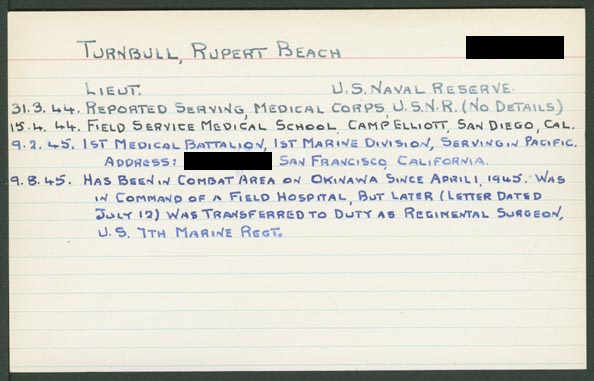 TURNBULL, RUPERT BEACH
LIEUT. U.S. NAVAL RESERVE.
31.3.44. REPORTED SERVING, MEDICAL CORPS, U.S.N.R. (NO DETAILS)
15.4.44. FIELD SERVICE MEDICAL SCHOOL, CAMP ELLIOTT, SAN DIEGO, CAL.
9.2.45. 1ST MEDICAL BATTALION, 1ST MARINE DIVISION, SERVING IN PACIFIC.
ADDRESS: SAN FRANCISCO, CALIFORNIA.
9.8.45. HAS BEEN IN COMBAT AREA ON OKINAWA SINCE APRIL 1, 1945. WAS
IN COMMAND OF A FIELD HOSPITAL, BUT LATER (LETTER DATED
JULY 12) WAS TRANSFERRED TO DUTY AS REGIMENTAL SURGEON,
U.S. 7TH MARINE REGT.